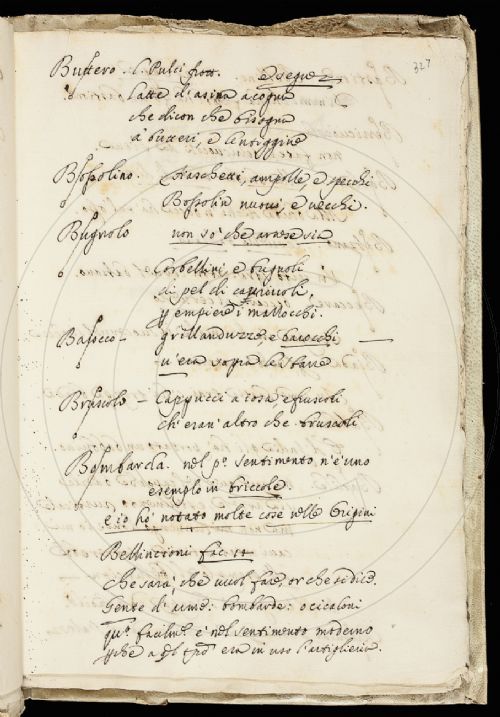 327
Buttero. L. Pulci frott. e segue
Latte d'asina a cogni
che dicon che bisogni
a butteri, e lentiggine
Bossolino. fiaschetti, ampolle, e specchi
Bossolin nuovi, e vecchi.
Bugnolo non so' che arnese sia
Corbellini e bugnoli
di pel di
empiere i mallocchi.
Baiocco - grillanduzze, e baiocchi
v'era sopra le sbarre
Bruscolo - Cappucci a cosa e fusoli
ch'eran altro che bruscoli
Bombarda. nel pº sentimento n'è uno
esempio in briccole.
e io hò notato molte cose nelle Origini
Bellincioni fac: 11
che sarà, che vuol fare, or che si dice.
Gente d'arme: bombarde: o cicaloni
facilmᵉ è nel sentimento moderno
era in uso l'artiglieria.